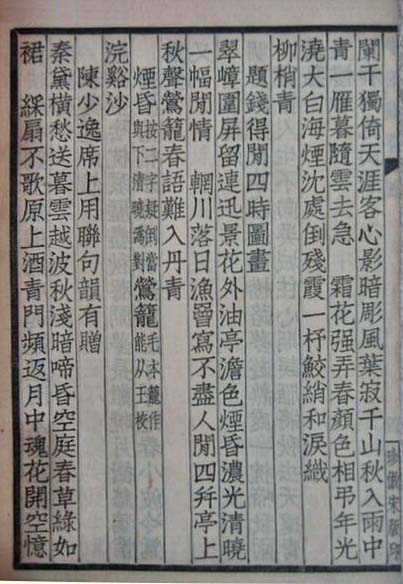 闌干獨倚天涯客心影暗彫風葉寂千山秋入雨中
青一雁暮隨雲去急　霜花強弄春顏色相弔年光
澆大白海煙沈處倒殘霞一杼鮫綃和淚織
柳梢青
題錢得閒四時圖畫
翠嶂圍屏留連迅景花外油亭澹色煙昏濃光清曉
一幅閒情　輞川落日漁罾寫不盡人閒四并亭上
秋聲鶯籠春語難入丹青
煙昏按二字疑倒當與下清曉爲對鶯籠毛本籠作能从王校
浣谿沙
陳少逸席上用聯句韻有贈
秦黛橫愁送暮雲越波秋淺暗啼昏空庭春草綠如
裙　綵扇不歌原上酒青門頻返月中魂花開空憶
珍倣宋版印